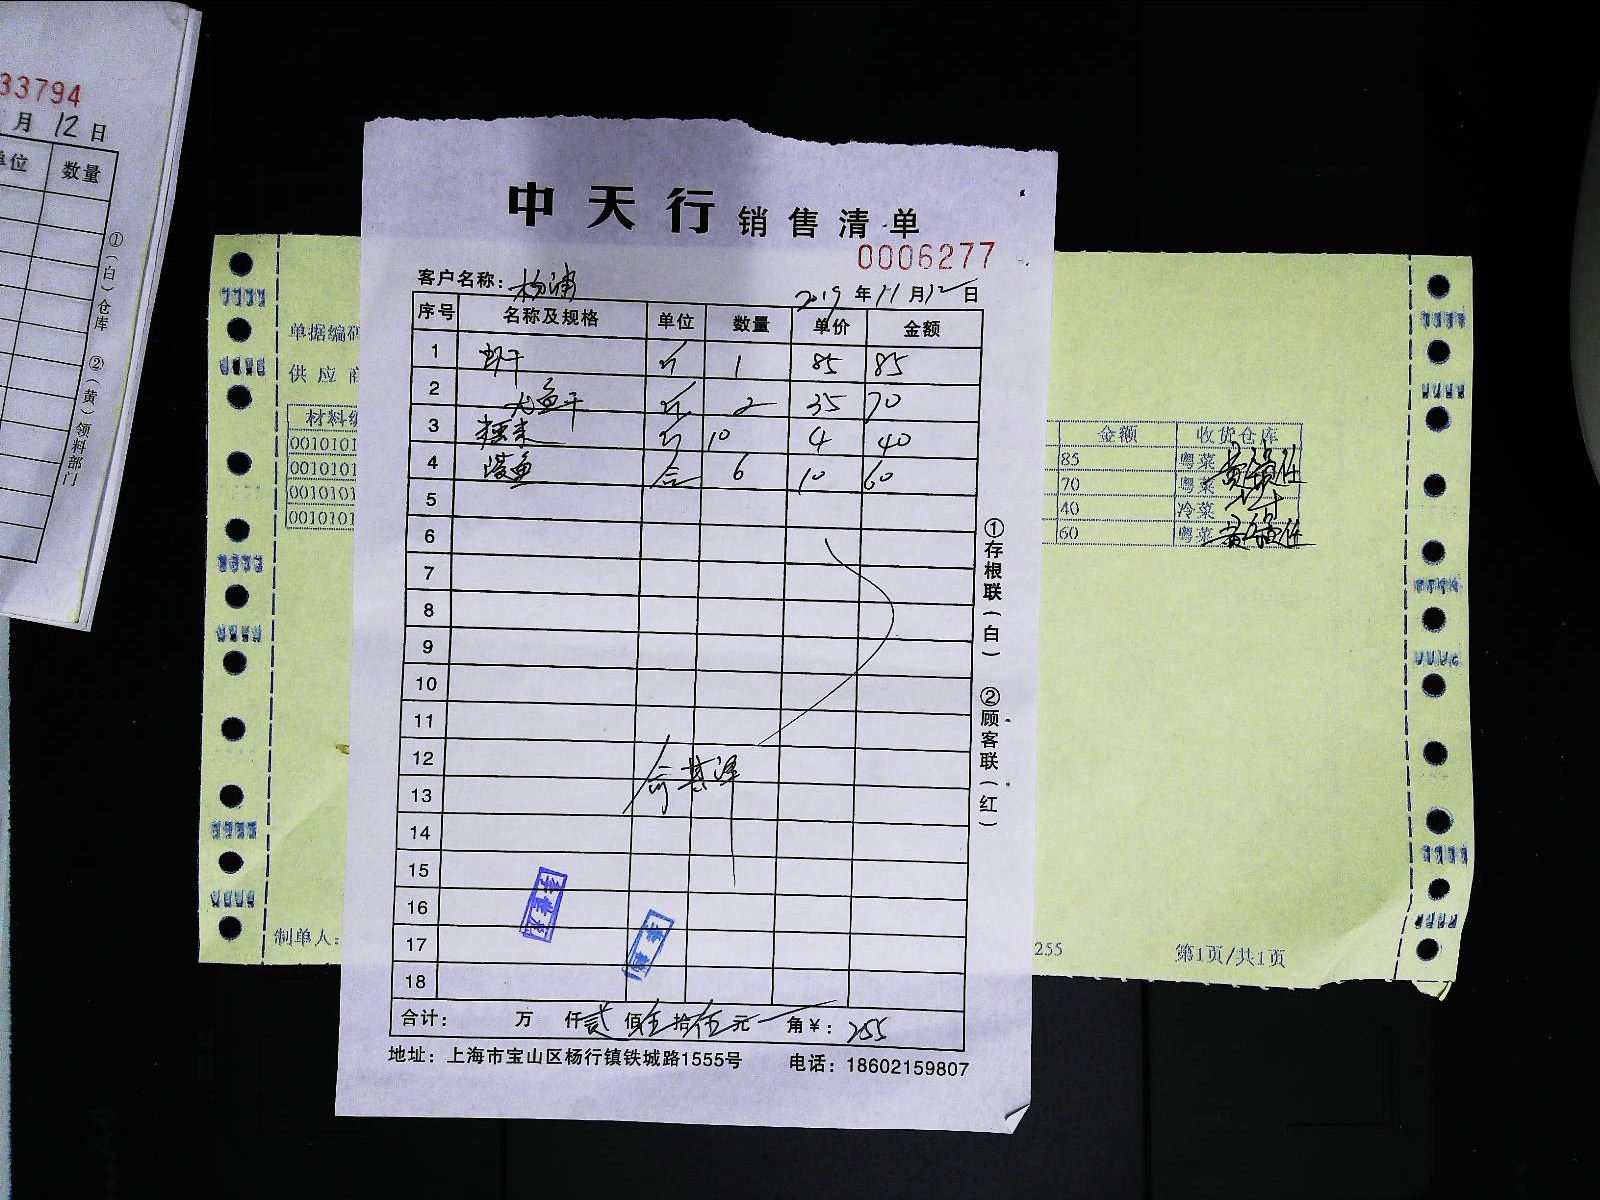 33794
月 12 日
单位 数量
①(白)仓库 ②(黄)领料部门
中天行 销售清单
0006277
客户名称: 杨浦 2019 年 11 月 12 日
序号 名称及规格 单位 数量 单价 金额
1 虾干 斤 1 85 85
2 尤鱼干 斤 2 35 70
3 糯米 斤 10 4 40
4 鱼 合 6 10 60
5
6
7
8
9
10
11
12
13
14
15
16
17
18
合计: 万 仟 贰 佰 伍 拾 伍 元 角 ¥: 255
地址: 上海市宝山区杨行镇铁城路1555号 电话: 18602159807
①存根联(白) ②顾客联(红)
单据编码
供应商
材料编
0010101
0010101
0010101
0010101
金额 收货仓库
85 粤菜
70 粤菜
40 冷菜
60 粤菜
制单人:
255
第1页/共1页